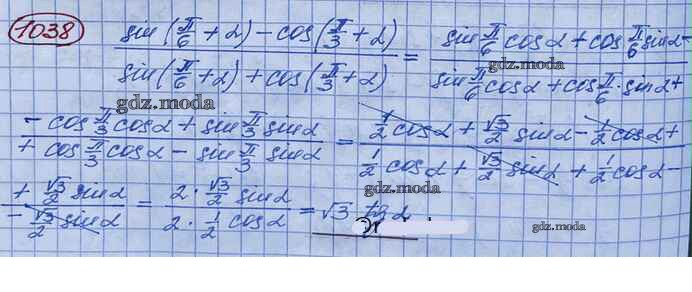 1038 (sin(π/6 + α) − cos(π/3 + α)) / (sin(π/6 + α) + cos(π/3 + α)) = (sin π/6 cos α + cos π/6 sin α − / sin π/6 cos α + cos π/6 · sin α +
gdz.moda
gdz.moda
− cos π/3 cos α + sin π/3 sin α / + cos π/3 cos α − sin π/3 sin α) = (1/2 cos α + √3/2 sin α − 1/2 cos α + / 1/2 cos α + √3/2 sin α + 1/2 cos α −
gdz.moda
gdz.moda
+ √3/2 sin α / − √3/2 sin α) = (2 · √3/2 sin α) / (2 · 1/2 cos α) = √3 tg α
gdz.moda